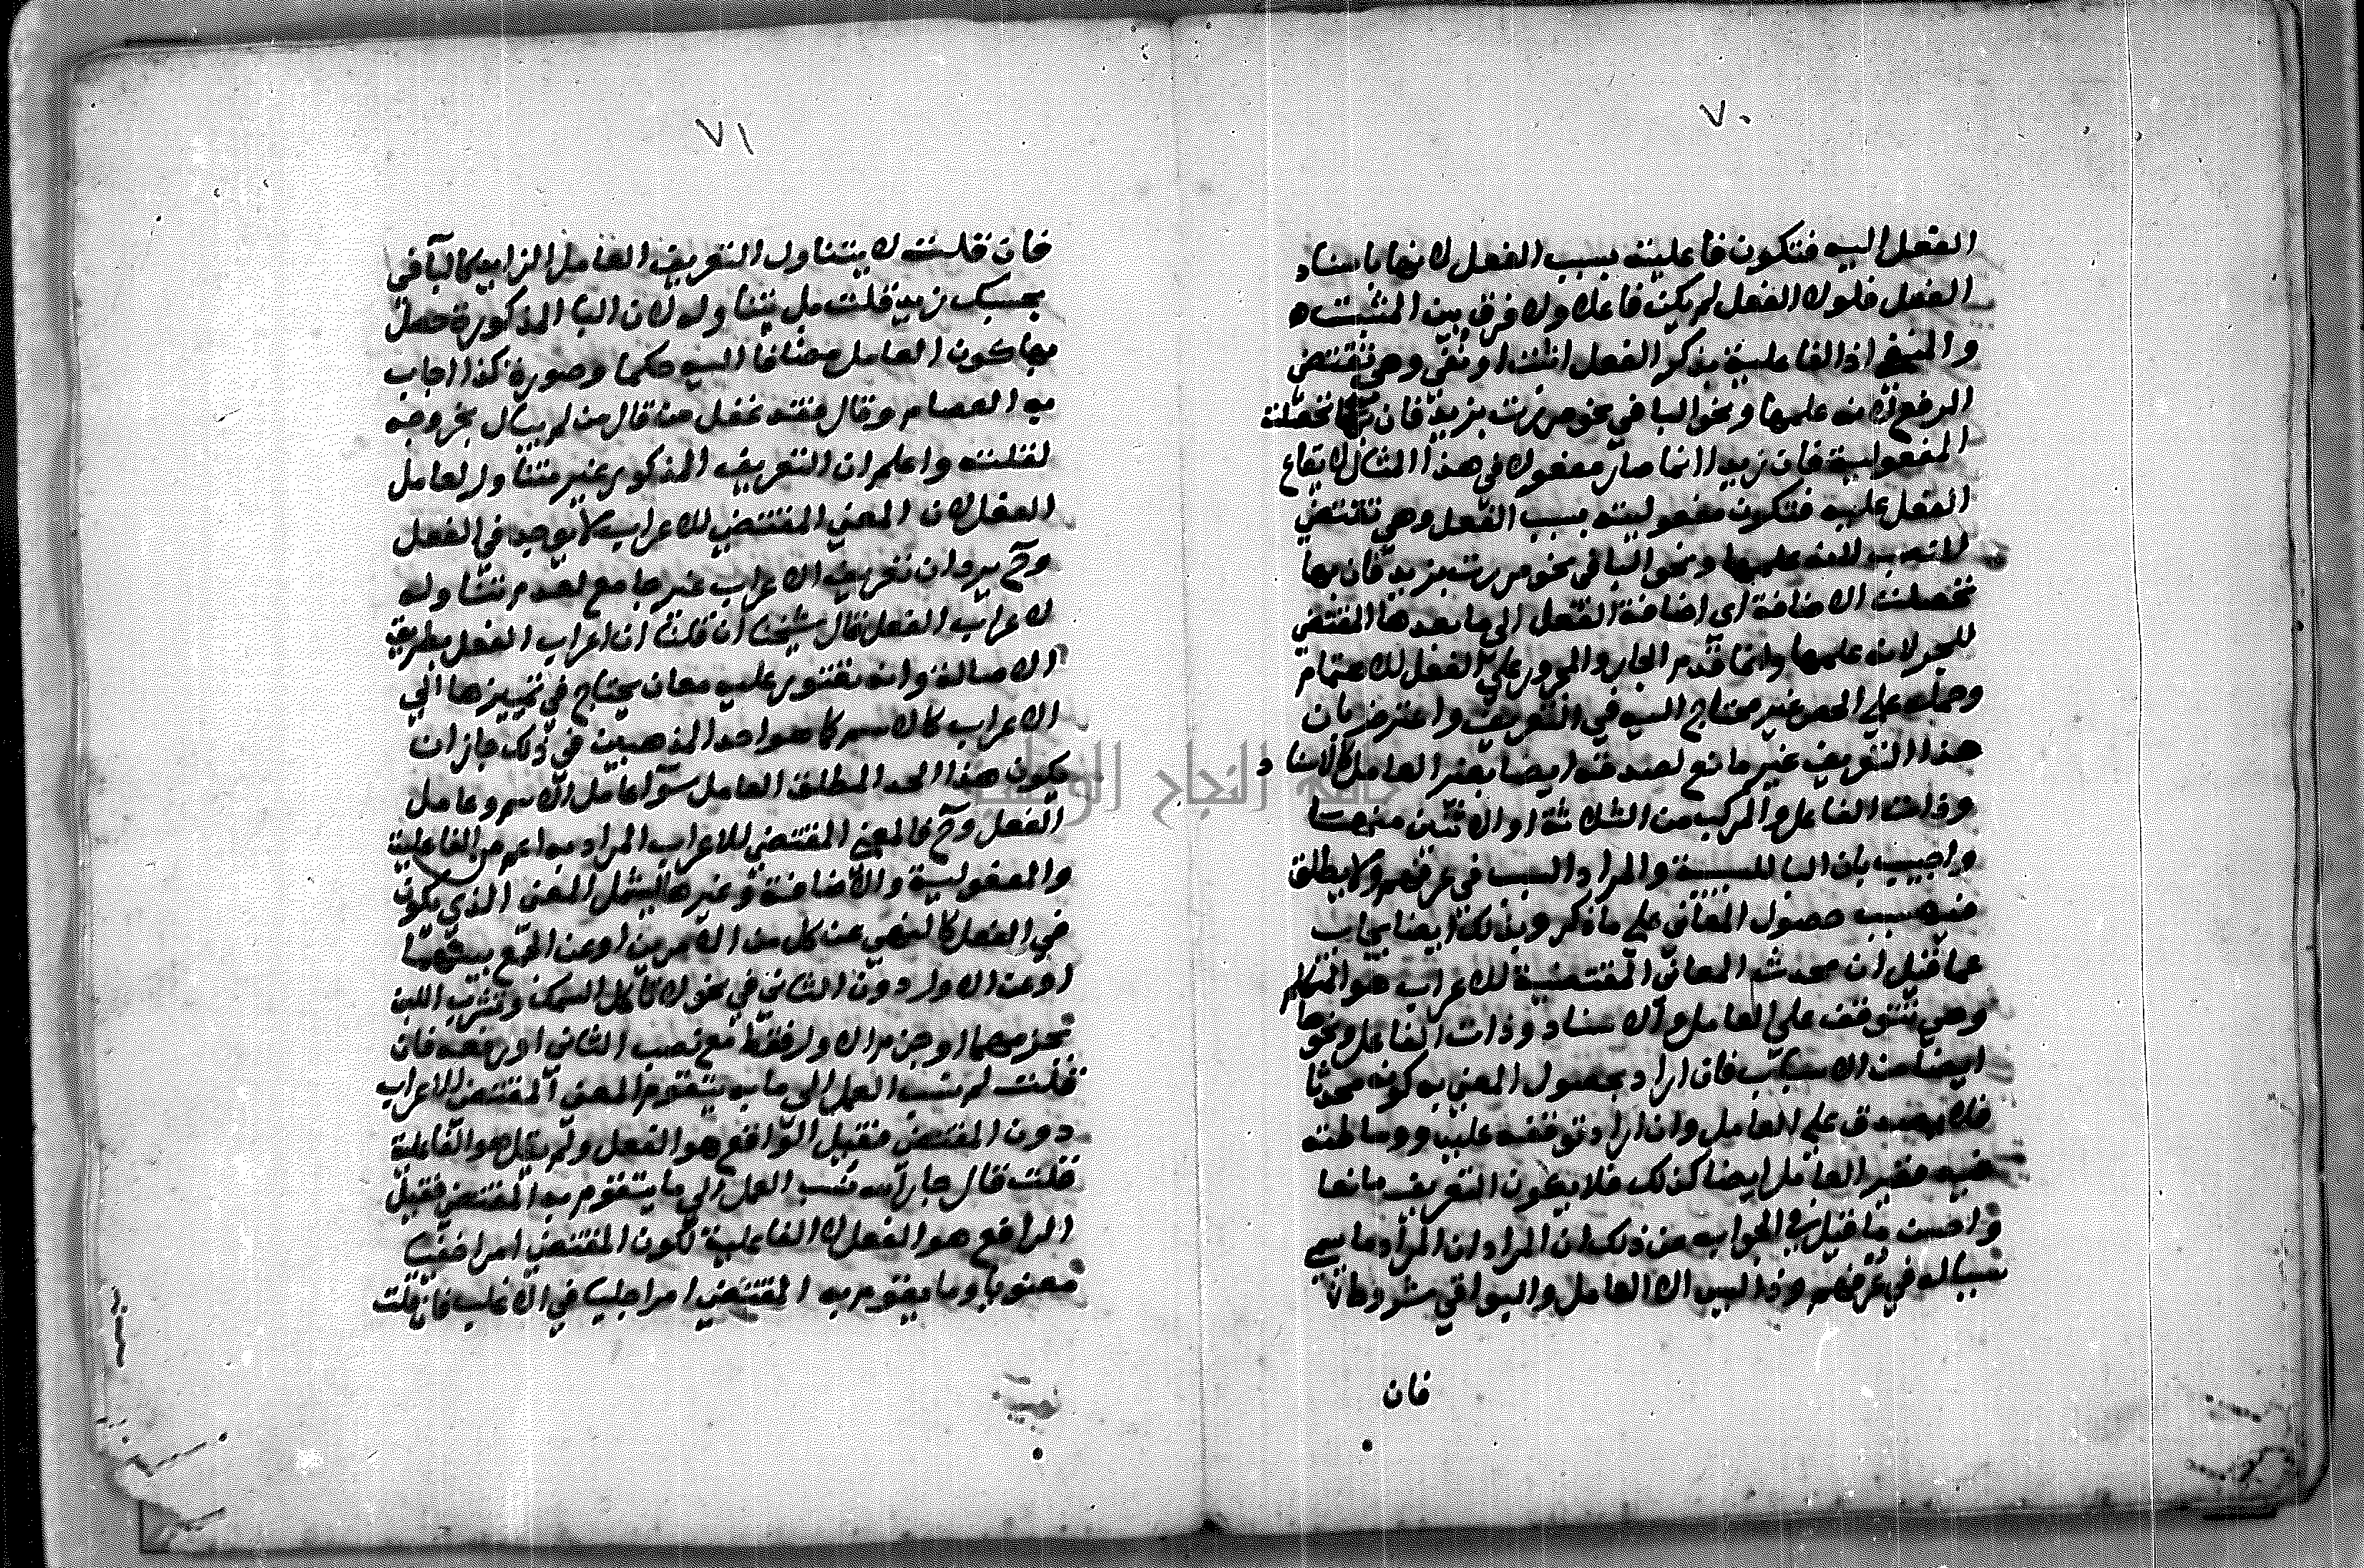 ٧٠
الفعل اليه فتكون فاعليته بسبب الفعل لانها باسناد
الفعل فلولا الفعل لم يكن فاعلا ولا فرق بين المثبت
والمنفي اذ الفاعلية بذكر الفعل اثبت او نفي وهي تقتضي
الرفع لانه علمها ونحو البا في نحو مررت بزيد فان بها تحصلت
المفعولية فان زيدا انما صار مفعولا في هذا المثال لايقاع
الفعل عليه فتكون مفعوليته بسبب الفعل وهي تقتضي
لانه علمها ونحو البا في نحو مررت بزيد فان بها
تحصلت الاضافة اي اضافة الفعل الى ما بعدها المقتضي
للجر لانه علمها وانما قدم الجار والمجرور على الفعل للاهتمام
وحمله على الحصر غير محتاج اليه في التعريف واعترض بان
هذا التعريف غير مانع لصدقه ايضا بغير العامل كالاسناد
وذات الفاعل والمركب من الثلاثة او الاثنين منها
واجيب بان البا للسببية والمراد السبب في عرفهم ولا يطلق
سبب حصول المعاني على ما ذكر وبذلك ايضا يجاب
عما قيل ان محدث المعاني المقتضية للاعراب هو المتكلم
وهي تتوقف على العامل والاسناد وذات الفاعل ونحوها
ايضا من الاسباب فان اراد بحصول المعني به كونه محدثا
فلا يصدق على العامل وان اراد توقفه عليه ووساطته
فيه فغير العامل ايضا كذلك فلا يكون التعريف مانعا
واحسن ما قيل في الجواب من ذلك ان المراد ان المراد ما سمي
سببا له في عرفهم وذا ليس الا العامل والبواقي مشروطات
فان
٧١
فان قلت لا يتناول التعريف العامل الزايد كالبا في
بحسبك زيد قلت بل يتناوله لان البا المذكورة حصل
بها كون العامل مضافا اليه حكما وصورة كذا اجاب
به العصام وقال فقد غفل من قال من لم يبال بخروجه
لقلته واعلم ان التعريف المذكور غير متناول لعامل
الفعل لان المعنى المقتضي للاعراب لا يوجد في الفعل
وح يرد ان تعريف الاعراب غير جامع لعدم تناوله
لاعراب الفعل قال شيخنا ان قلنا ان اعراب الفعل بطريق
الاصالة وانه تعتور عليه معان يحتاج في تمييزها الى
الاعراب كالاسم كما هو احد المذهبين في ذلك جاز ان
يكون هذا الحد المطلق العامل سوآ عامل الاسم وعامل
الفعل وح فالمعنى المقتضي للاعراب المراد به اعم من الفاعلية
والمفعولية والاضافة وغيرها ليشمل المعنى الذي يكون
في الفعل كالنهي عن كل من الامرين او عن الجمع بينهما
او عن الاول دون الثاني في نحو لا تأكل السمك وتشرب اللبن
بجزمهما او جزم الاول فقط مع نصب الثاني او رفعه فان
قلت لم نسب العمل الى ما به يتقوم المعنى المقتضي للاعراب
دون المقتضي فقيل الرافع هو الفعل ولم يقل هو الفاعلية
قلت قال جار الله نسب العمل الى ما يتقوم به المقتضي فقيل
الرافع هو الفعل لا الفاعلية لكون المقتضي امرا خفيا
معنويا وما يتقوم به المقتضي امرا جليا في الاغلب فان قلت
جامعة النجاح الوطنية